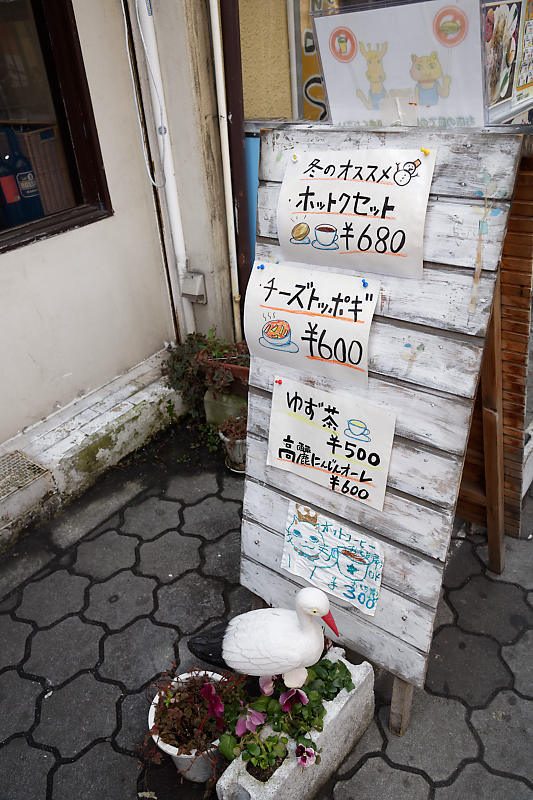 冬のオススメ
・ホットクセット
¥680
・チーズトッポギ・
¥600
ゆず茶
¥500
高麗にんじんオーレ
¥600
ホットコーヒー
¥300